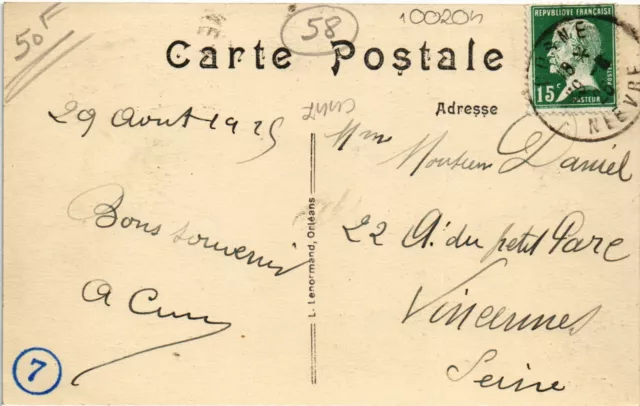 50F
58
100204
Carte Postale
Adresse
REPUBLIQUE FRANÇAISE
15c
PASTEUR
NIEVRE
29 Aout 1925
Bons souvenir
L. Lenormand, Orléans
Mme
Monsieur Daniel
22 A. du petit Parc
Vincennes
Seine
7